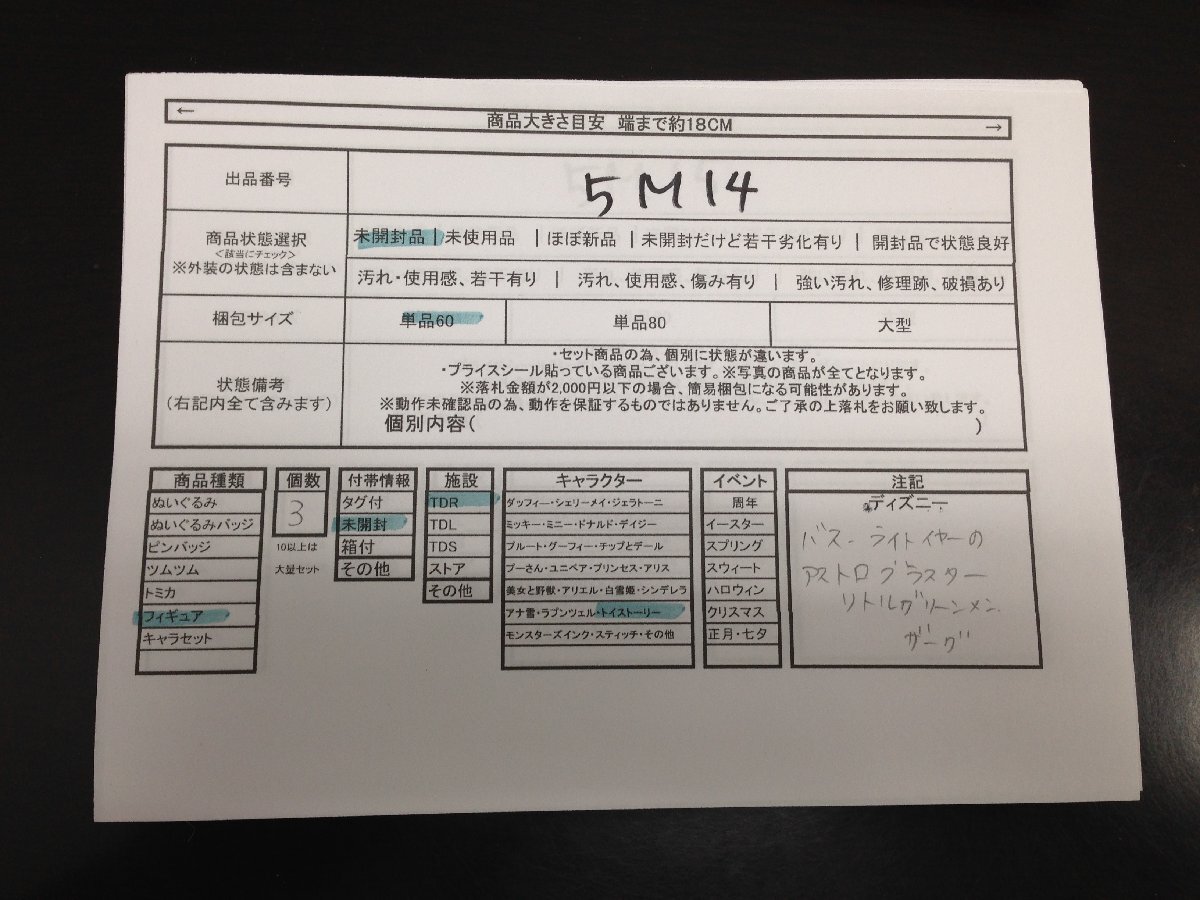 ← 商品大きさ目安 端まで約18CM →
出品番号 5M14
商品状態選択
<該当にチェック>
※外装の状態は含まない
未開封品 | 未使用品 | ほぼ新品 | 未開封だけど若干劣化有り | 開封品で状態良好
汚れ・使用感、若干有り | 汚れ、使用感、傷み有り | 強い汚れ、修理跡、破損あり
梱包サイズ 単品60 単品80 大型
状態備考
(右記内全て含みます)
・セット商品の為、個別に状態が違います。
・プライスシール貼っている商品ございます。※写真の商品が全てとなります。
※落札金額が2,000円以下の場合、簡易梱包になる可能性があります。
※動作未確認品の為、動作を保証するものではありません。ご了承の上落札をお願い致します。
個別内容( )
商品種類
ぬいぐるみ
ぬいぐるみバッジ
ピンバッジ
ツムツム
トミカ
フィギュア
キャラセット
個数
3
10以上は
大量セット
付帯情報
タグ付
未開封
箱付
その他
施設
TDR
TDL
TDS
ストア
その他
キャラクター
ダッフィー・シェリーメイ・ジェラトーニ
ミッキー・ミニー・ドナルド・デイジー
プルート・グーフィー・チップとデール
プーさん・ユニベア・プリンセス・アリス
美女と野獣・アリエル・白雪姫・シンデレラ
アナ雪・ラプンツェル・トイストーリー
モンスターズインク・スティッチ・その他
イベント
周年
イースター
スプリング
スウィート
ハロウィン
クリスマス
正月・七夕
注記
ディズニー
バズ・ライトイヤーの
アストロブラスター
リトルグリーンメン
ザーグ